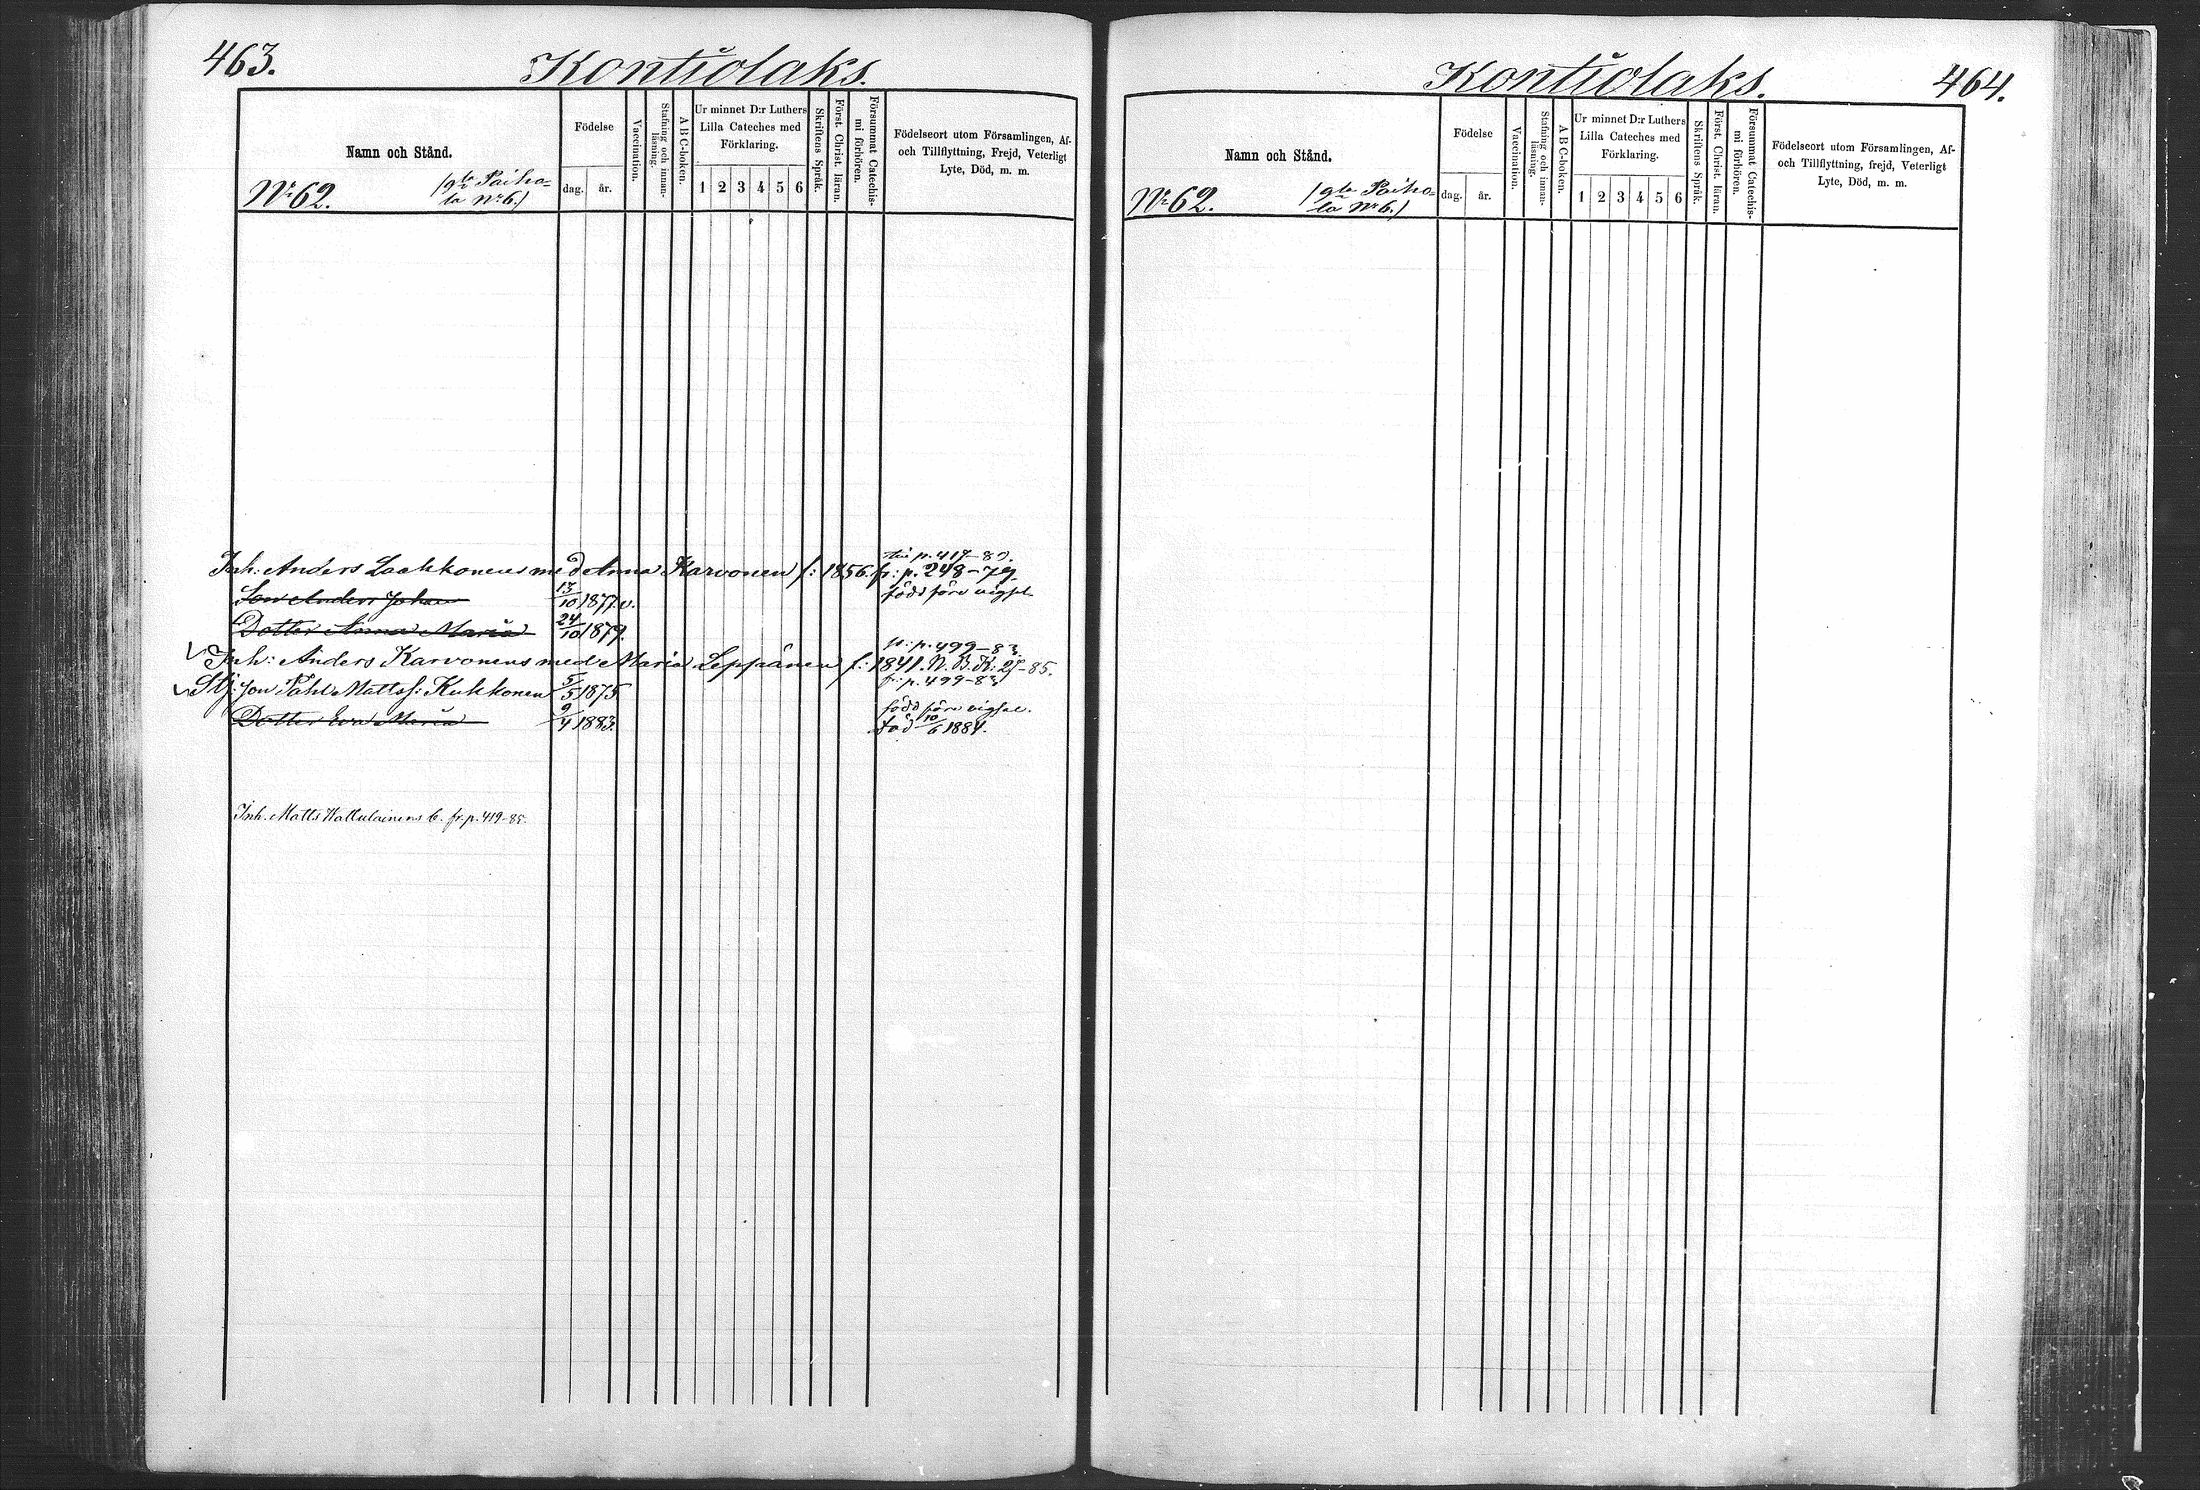 463.
Kontiolaks.
Namn och Stånd.
Födelse
dag. år.
Vaccination.
Stafning och innan-
läsning.
A B C-boken.
Ur minnet D:r Luthers
Lilla Cateches med
Förklaring.
1 2 3 4 5 6
Skriftens Språk.
Först. Christ. läran.
Försummat Catechis-
mi förhören.
Födelseort utom Församlingen, Af-
och Tillflyttning, Frejd, Veterligt
Lyte, Död, m. m.
No 62. (gla Paiho-
la No 6.)
p. 417-80.
Inh: Anders Laakkonens med Anna Karvonen f: 1856. fr: p. 248-79.
Son Anders Johan 13/10 1877. v. född före vigsel.
Dotter Anna Maria 24/10 1879.
fr: p. 499-83.
Inh: Anders Karvonens med Maria Leppänen f: 1841. N. B. K: 27-85.
Stj: son Påhl Mattss: Kukkonen 5/5 1875 fr: p. 499-83
född före vigsel.
Dotter Eva Maria 9/4 1883. död 10/6 1884.
Inh. Matts Hattulainens b. fr. p. 419-85.
Kontiolaks.
464.
Namn och Stånd.
Födelse
dag. år.
Vaccination.
Stafning och innan-
läsning.
A B C-boken.
Ur minnet D:r Luthers
Lilla Cateches med
Förklaring.
1 2 3 4 5 6
Skriftens Språk.
Först. Christ. läran.
Försummat Catechis-
mi förhören.
Födelseort utom Församlingen, Af-
och Tillflyttning, frejd, Veterligt
Lyte, Död, m. m.
No 62. (gla Paiho-
la No 6.)